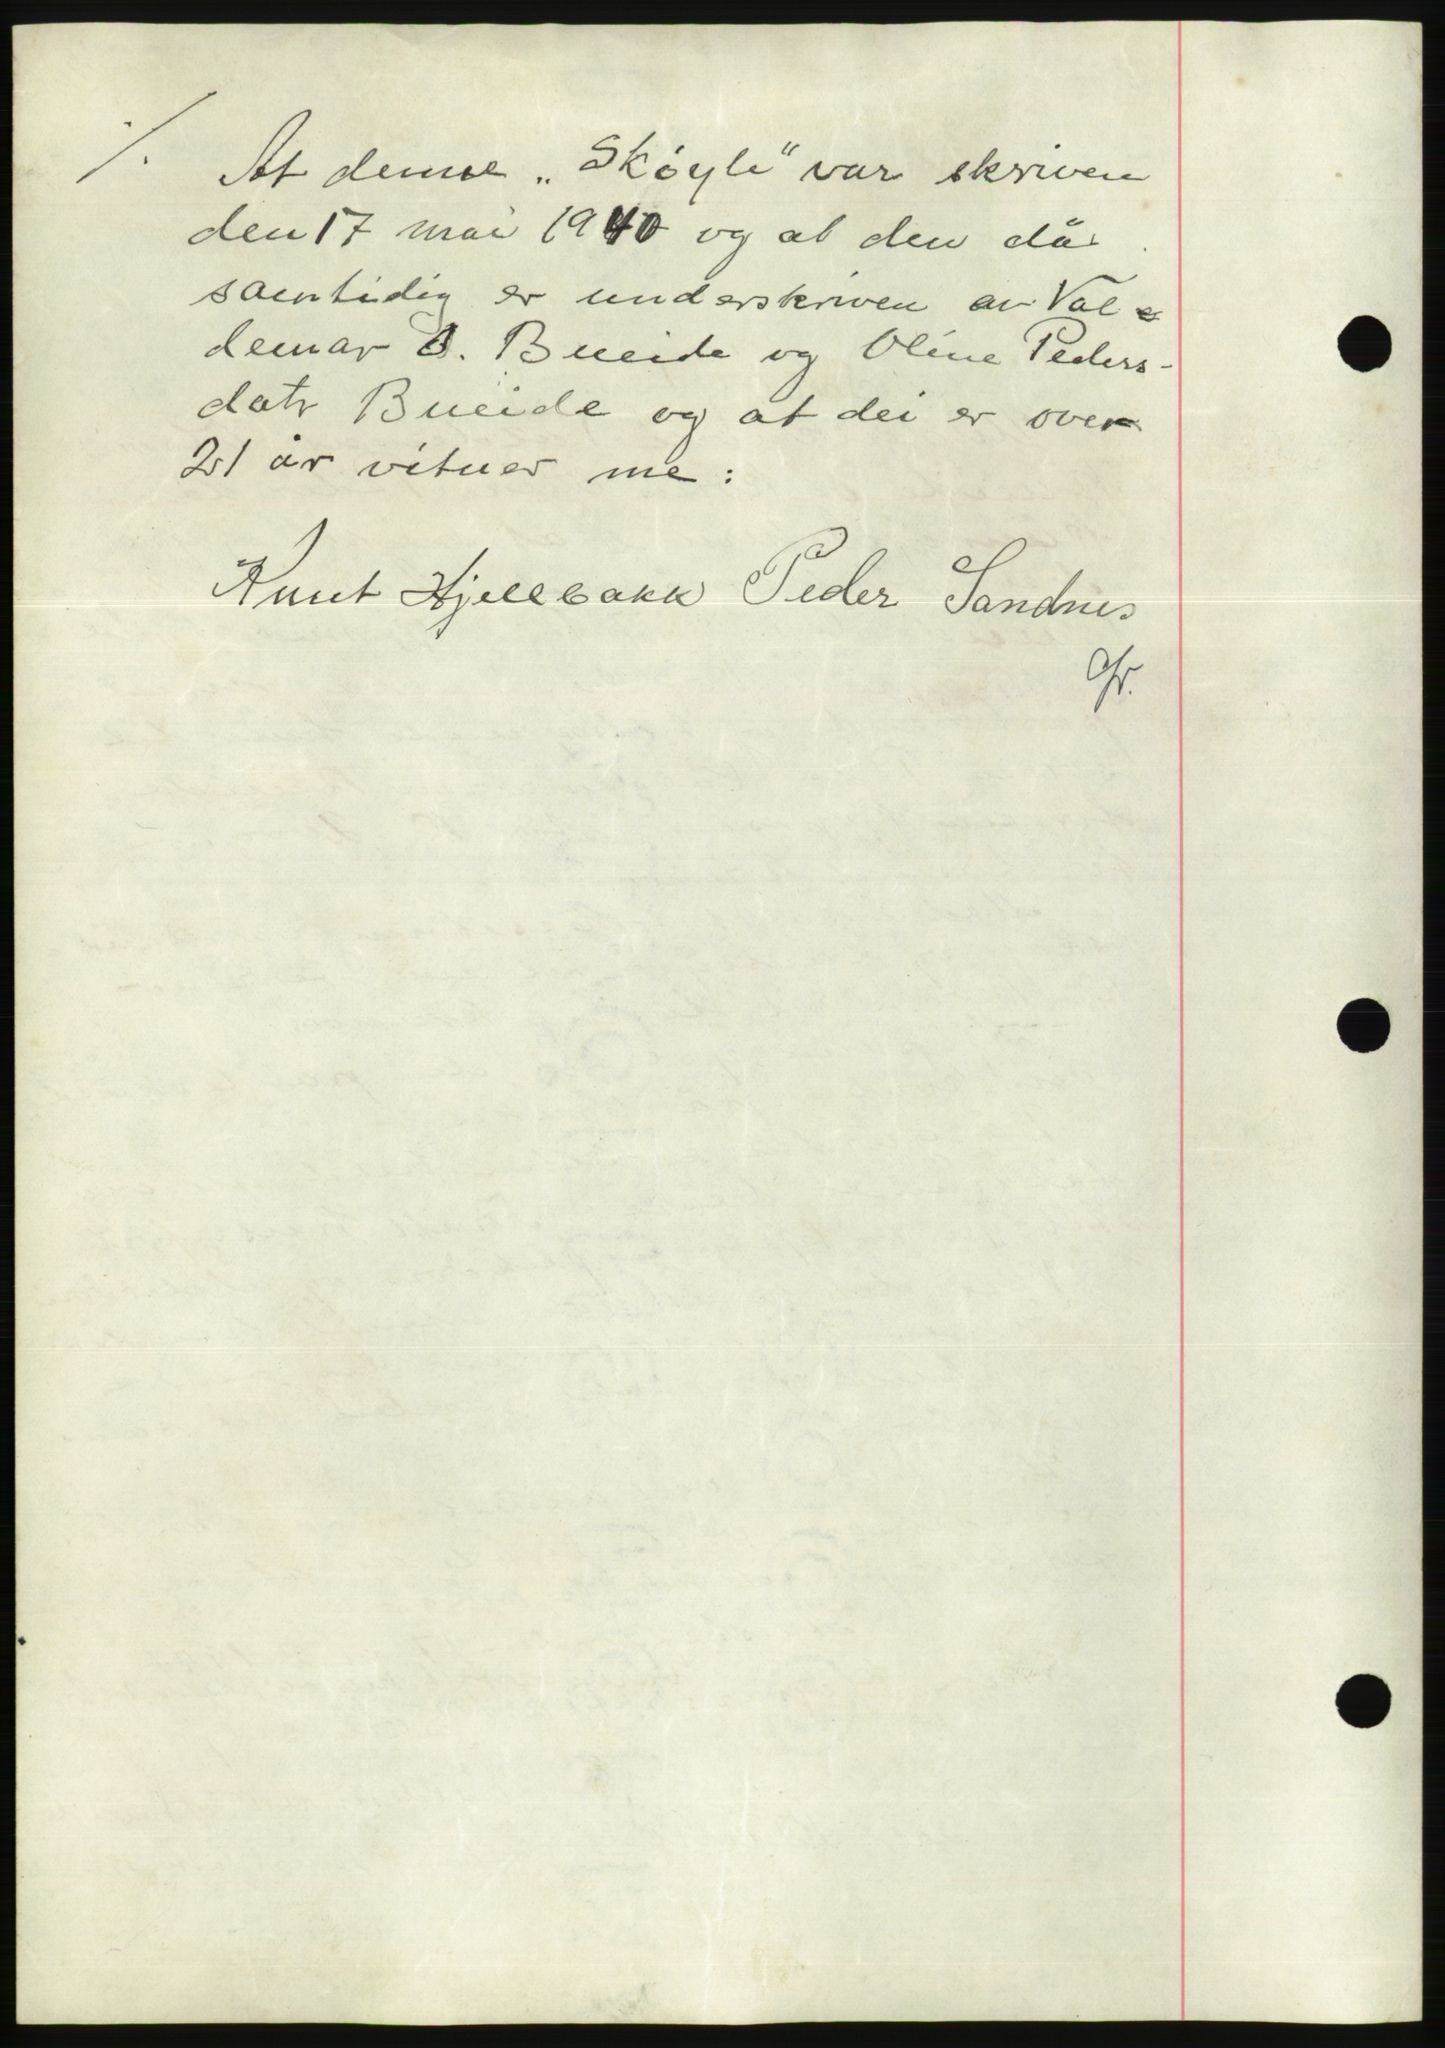 ·/. At denne „Sköyte" var skriven
den 17 mai 1940 og at den då
samtidig er underskriven av Val=
demar O. Bueide og Oline Peders-
datr Bueide og at dei er over
21 år vitner me:
Knut Hjellbakk Peder Sandnes